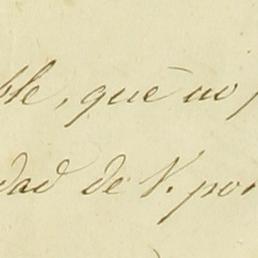 ble, que no
dad de V. por